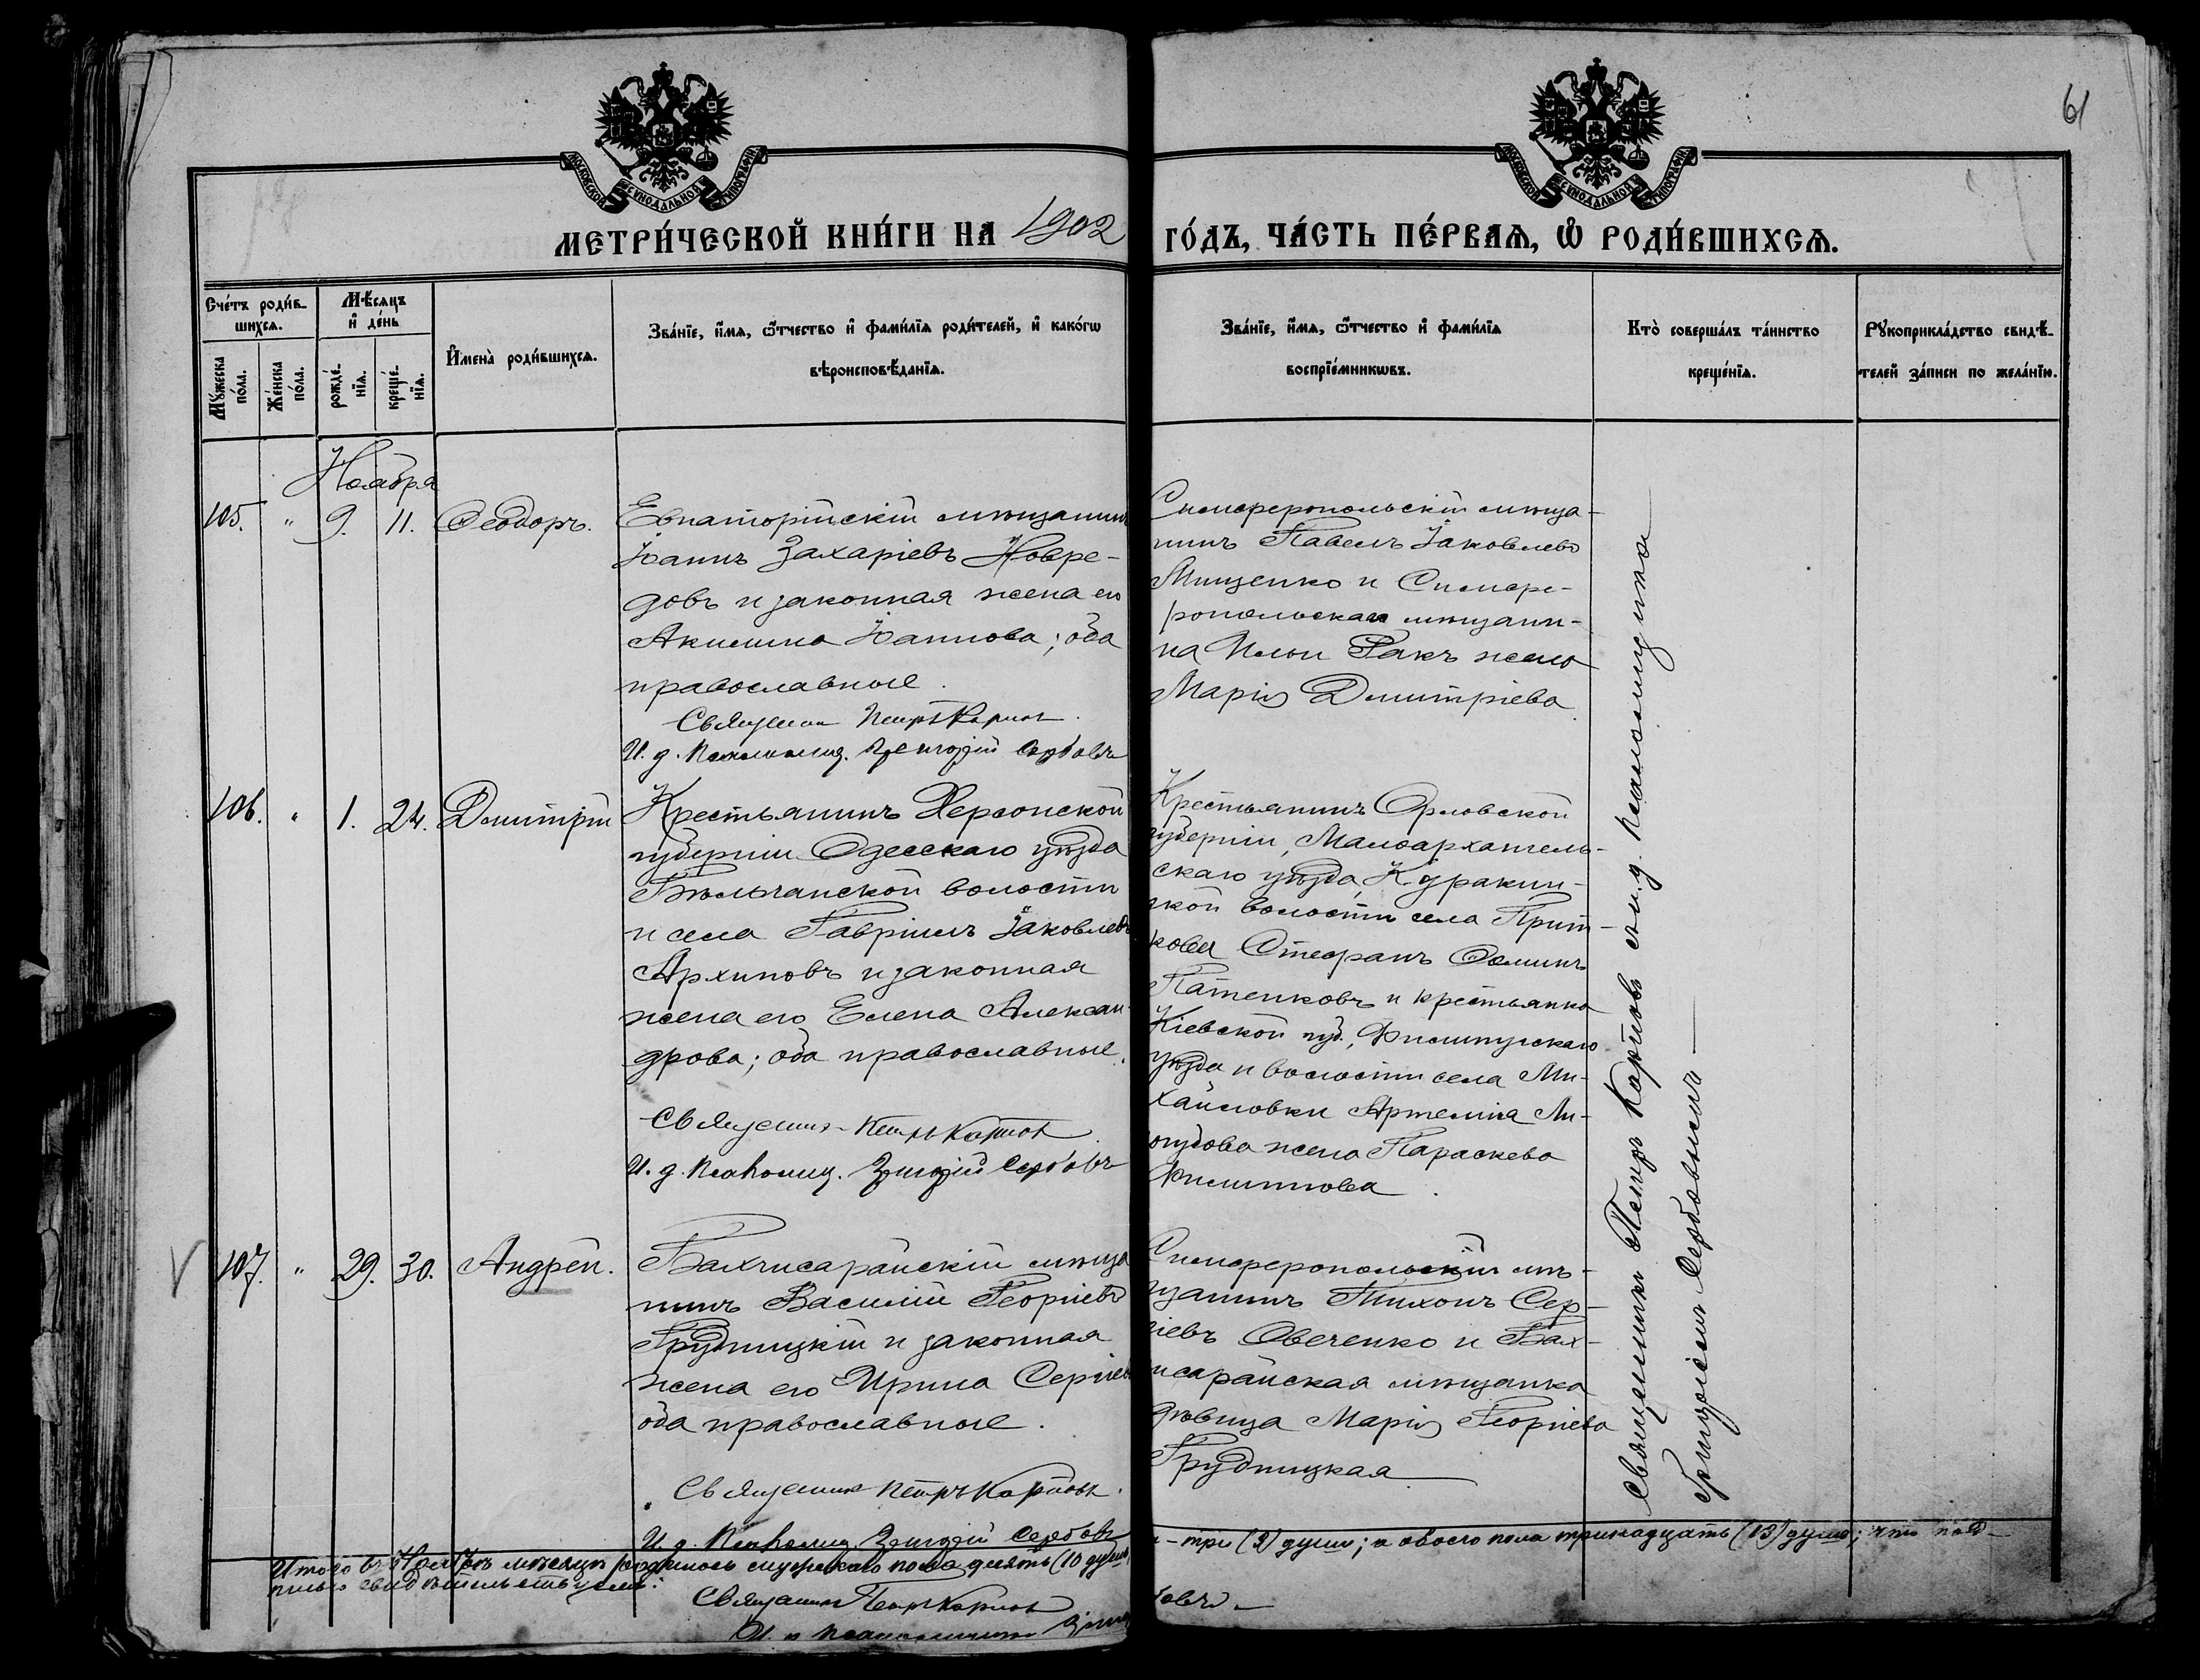 61
МОСКОВСКОЙ СѴНОДАЛЬНОЙ ТИПОГРАФІИ
МОСКОВСКОЙ СѴНОДАЛЬНОЙ ТИПОГРАФІИ
МЕТРИ́ЧЕСКОЙ КНИ́ГИ НА 1902 ГО́ДЪ, ЧА́СТЬ ПЕ́РВАѦ, Ѽ РОДИ́ВШИХСѦ.
Сче́тъ роди́в-
шихсѧ.
Мꙋ́жеска
по́ла.
Же́нска
по́ла.
Мѣ́сяцъ
и҆ де́нь
рожде́-
нїѧ.
креще́-
нїѧ.
И҆мена̀ роди́вшихсѧ.
Зва́нїе, и҆́мѧ, ѻ҆́тчество и҆ фами́лїѧ роди́телей, и҆ како́гѡ
вѣроисповѣ́данїѧ.
Зва́нїе, и҆́мѧ, ѻ҆́тчество и҆ фами́лїѧ
воспрїе́мникѡвъ.
Кто̀ соверша́лъ та́инство
креще́нїѧ.
Рꙋкоприкла́дство свидѣ́-
телей за́писи по жела́нїю.
Ноября
105. " 9. 11. Ѳеодоръ.
Евпаторійскій мѣщанин
Іоаннъ Захаріевъ Ховре-
довъ и законная жена его
Акилина Іоаннова; оба
православные.
Священник Петръ Карпов.
И. д. псаломщ. Григорій Сербовъ
Симферопольскій мѣща-
нинъ Павелъ Іаковлевъ
Мищенко и Симфе-
ропольскаго мѣщани-
на Ильи Рак жена
Марія Димитріева
106. " 1. 24. Димитрій
Крестьянинъ Херсонской
губерніи Одесскаго уѣзда
Бѣльчанской волости
и села Гавріилъ Іаковлевъ
Архиповъ и законная
жена его Елена Алексан-
дрова; оба православные.
Священник Петръ Карпов
И. д. псаломщ. Григорій Сербовъ
Крестьянинъ Орловской
губерніи, Малоархангель-
скаго уѣзда, Куракин-
ской волости села Прит-
кова Стефанъ Ѳоминъ
Патенковъ и крестьянка
Кіевской губ.,
уѣзда и волости села Ми-
хайловки Артеміа Ли-
жена Параскева
Филиппова.
107. " 29. 30. Андрей.
Бахчисарайскій мѣща
нинъ Василій Георгіевъ
Грудницкій и законная
жена его Ирина Сергіев
оба православные.
Священник Петръ Карповъ.
И. д. псаломщ. Григорій Сербовъ
Симферопольскій мѣ-
щанинъ Тихонъ Сер-
гіевъ Овеченко и Бах-
чисарайская мѣщанка
дѣвица Марія Георгіева
Грудницкая
Священникъ Петръ Карповъ съ и. д. псаломщика
Григоріемъ Сербовымъ
Итого въ Ноябрѣ мѣсяцѣ родилось мужскаго пола десять (10) душъ, - три (3) души; а обоего пола тринадцать (13) душъ; что под-
писью свидѣтельствуемъ:
Священник Петръ Карпов